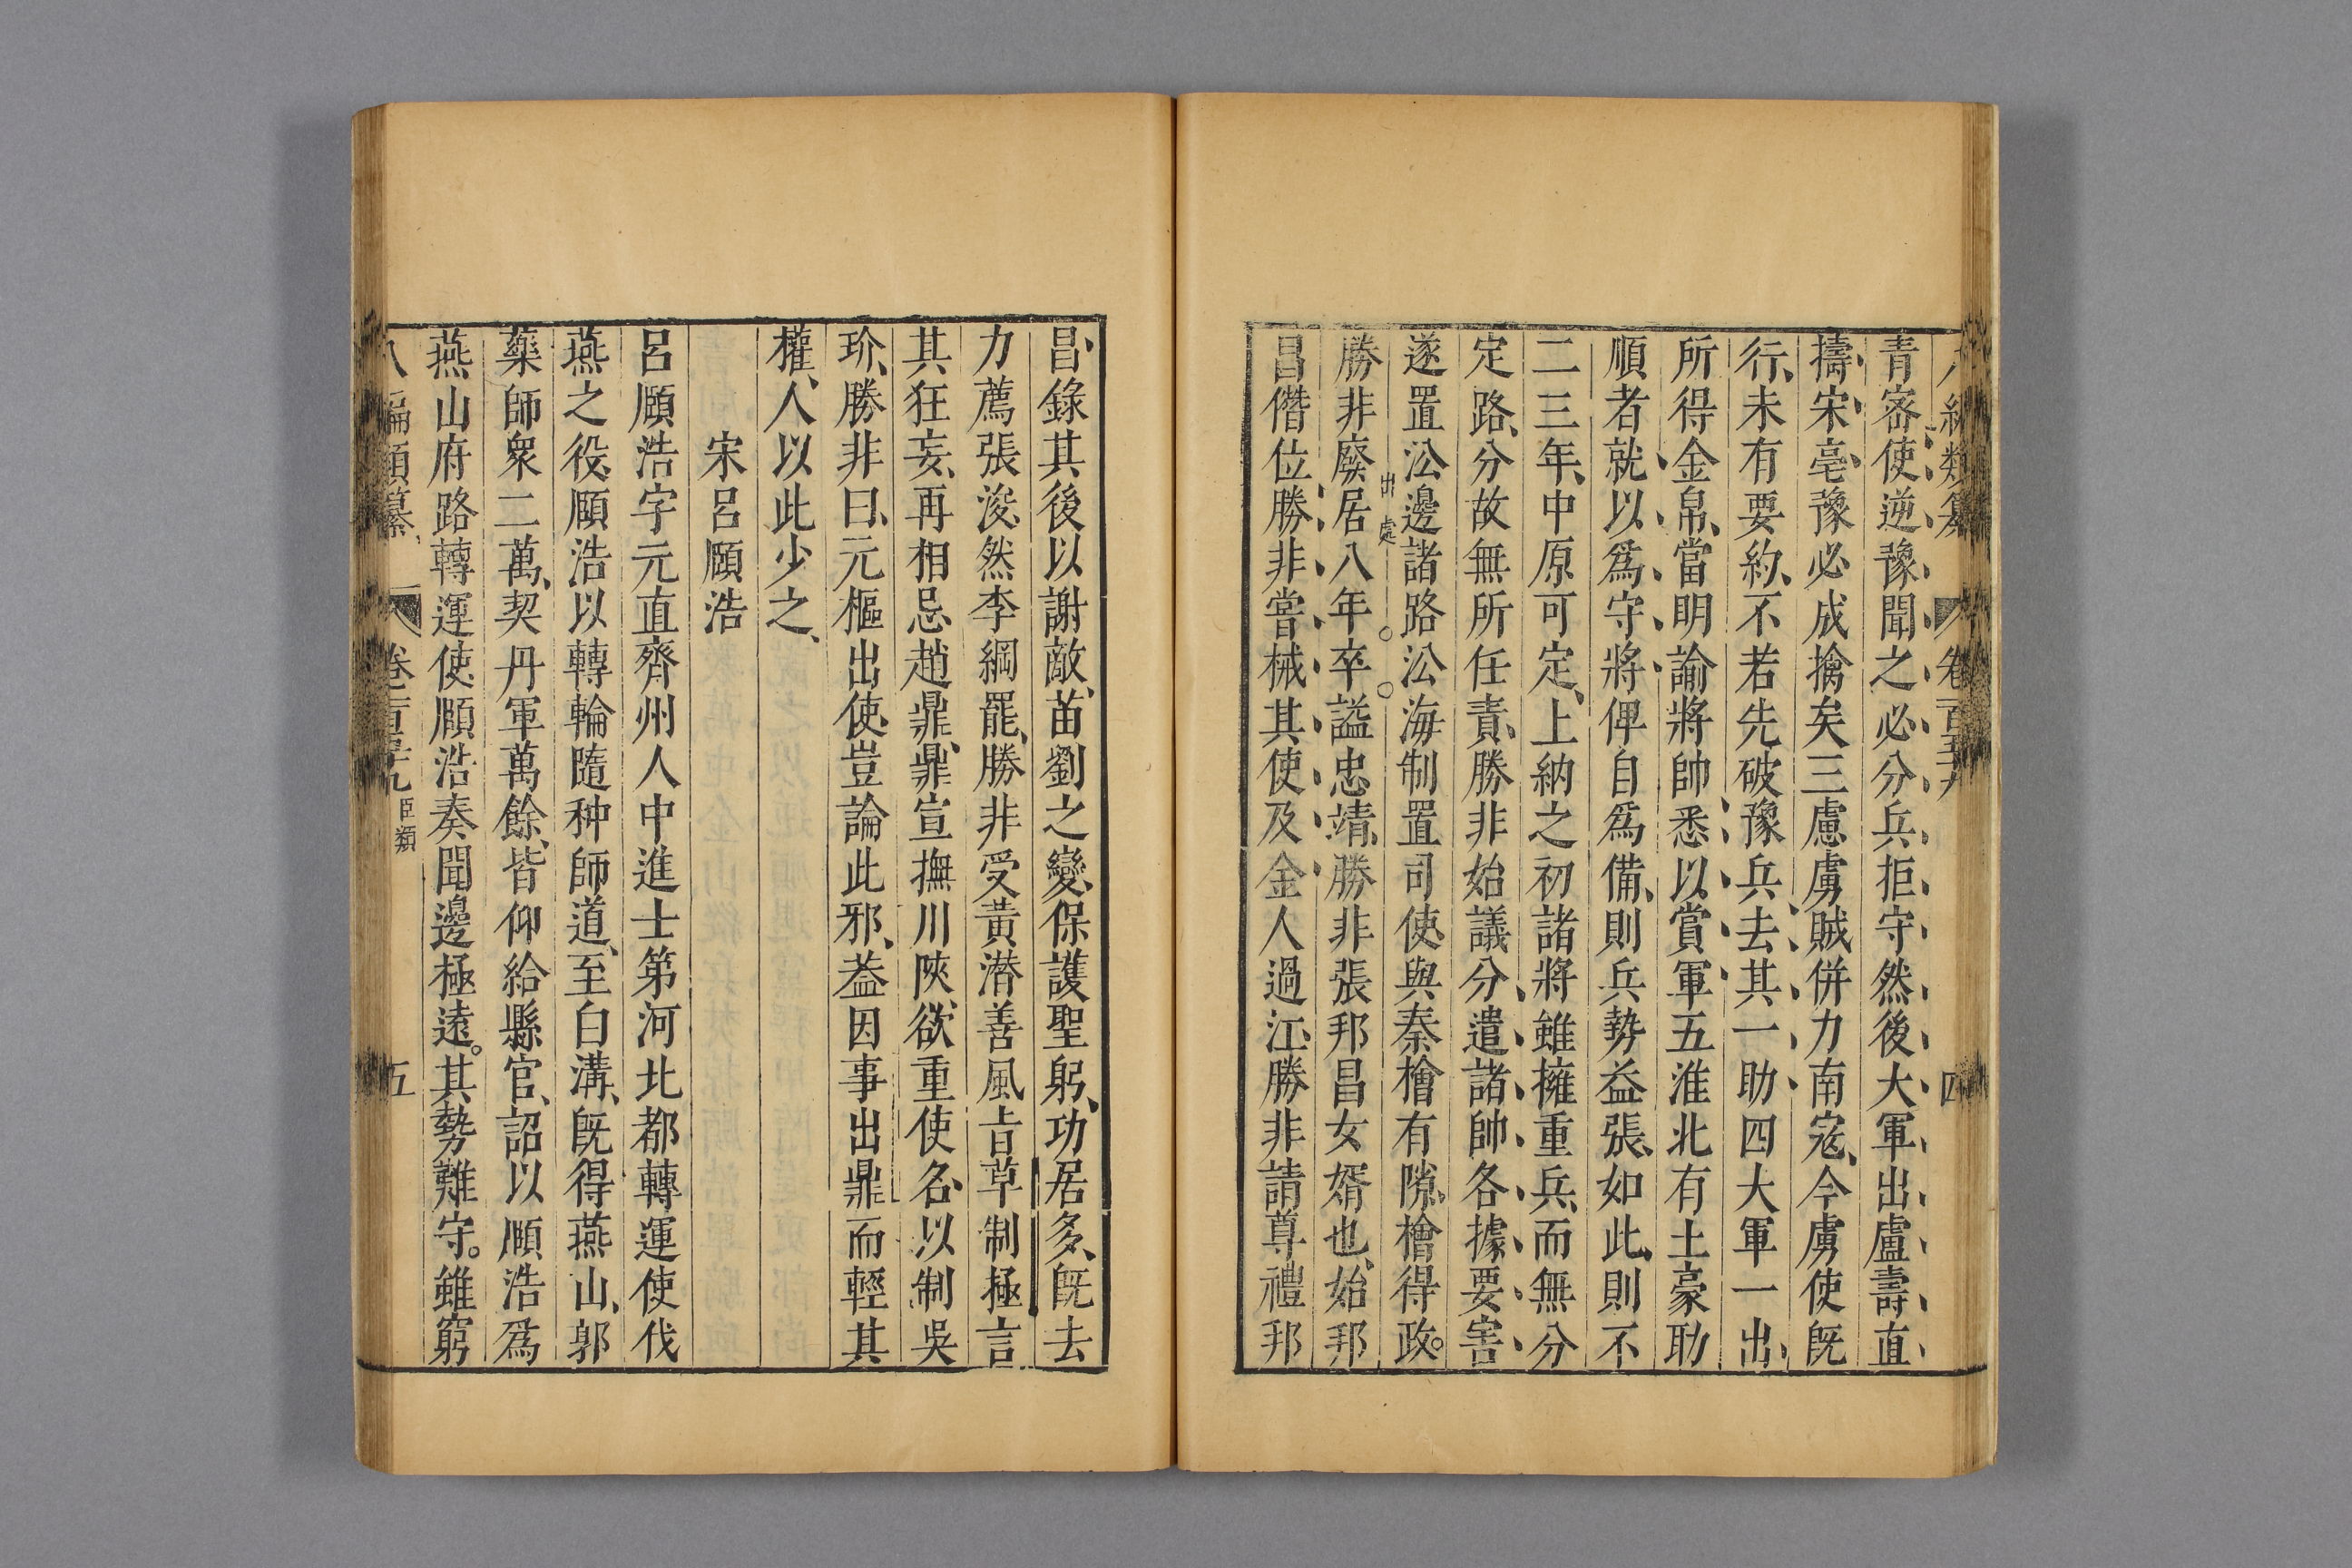 青密使逆豫聞之必分兵拒守然後大軍出盧壽直
擣宋亳豫必成擒矣三慮虜賊併力南寇今虜使既
行未有要約不若先破豫兵去其一助四大軍一出
所得金帛當明諭將帥悉以賞軍五淮北有土豪助
順者就以爲守將俾自爲備則兵勢益張如此則不
二三年中原可定上納之初諸將雖擁重兵而無分
定路分故無所任責勝非始議分遣諸帥各據要害
遂置㳂邊諸路㳂海制置司使與秦檜有隙檜得政
出處
勝非廢居八年卒謚忠靖勝非張邦昌女婿也始邦
昌僭位勝非嘗械其使及金人過江勝非請尊禮邦
昌錄其後以謝敵苗劉之變保護聖躬功居多既去
力薦張浚然李綱罷勝非受黃潜善風㫖草制極言
其狂妄再相忌趙鼎鼎宣撫川陝欲重使名以制吳
玠勝非曰元樞出使豈論此邪葢因事出鼎而輕其
權人以此少之
宋呂頤浩
呂頤浩字元直齊州人中進士第河北都轉運使伐
燕之役頤浩以轉輪隨种師道至白溝既得燕山郭
藥師衆二萬契丹軍萬餘皆仰給縣官詔以頤浩爲
燕山府路轉運使頤浩奏聞邊極遠其勢難守雖窮
編類纂 卷二百五十九 臣類 五